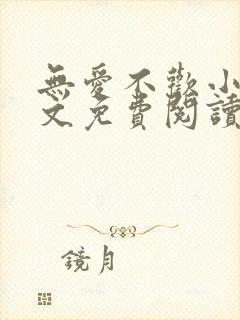 無愛不歡小
文免費閱讀
鏡月